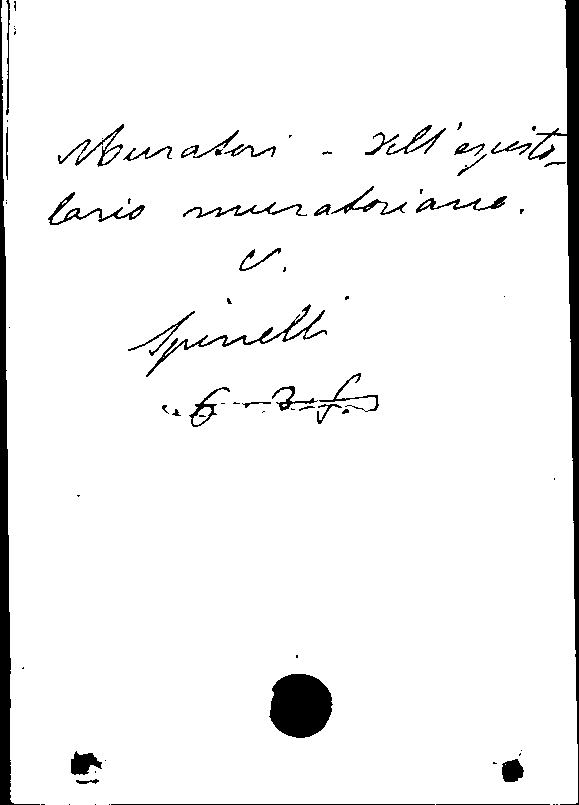 Muratori - Dell'episto-
lario muratoriano.
V.
Spinelli